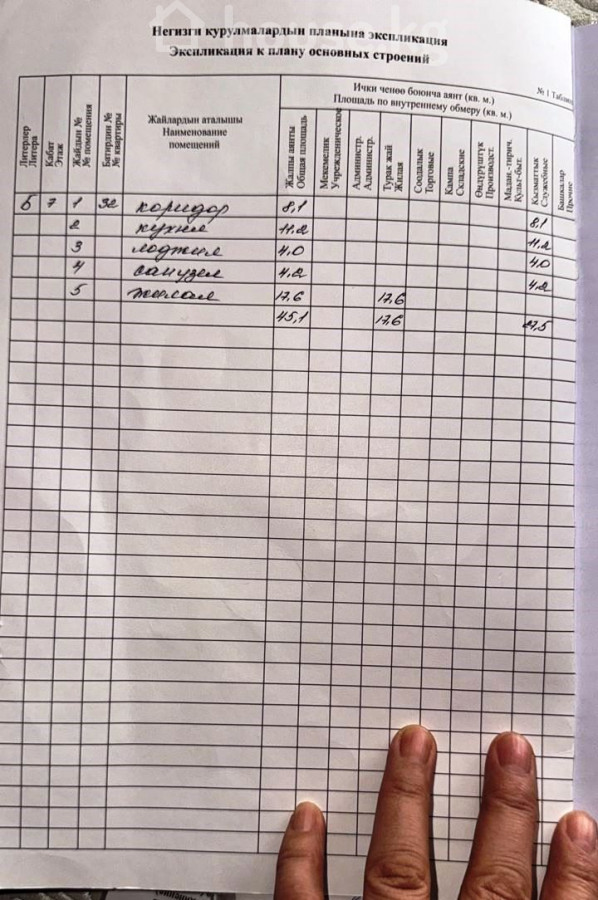 house.kg
Негизги курулмалардын планына экспликация
Экспликация к плану основных строений
№ 1 Таблица
Литерлер Литера
Кабат Этаж
Жайдын № № помещения
Батирдин № № квартиры
Жайлардын аталышы
Наименование
помещений
Ички ченөө боюнча аянт (кв. м.)
Площадь по внутреннему обмеру (кв. м.)
Жалпы аянты Общая площадь
Мекемелик Учрежденическое
Администр. Администр.
Турак жай Жилая
Соодалык Торговые
Кампа Складские
Өндүрүштүк Производст.
Мадан.-тирич. Культ-быт.
Кызматтык Служебные
Башкалар Прочие
Б 7 1 32 коридор 8,1 8,1
2 кухня 11.2 11.2
3 лоджия 4,0 4,0
4 санузел 4,2 4,2
5 жилая 17,6 17,6
45,1 17,6 27,5